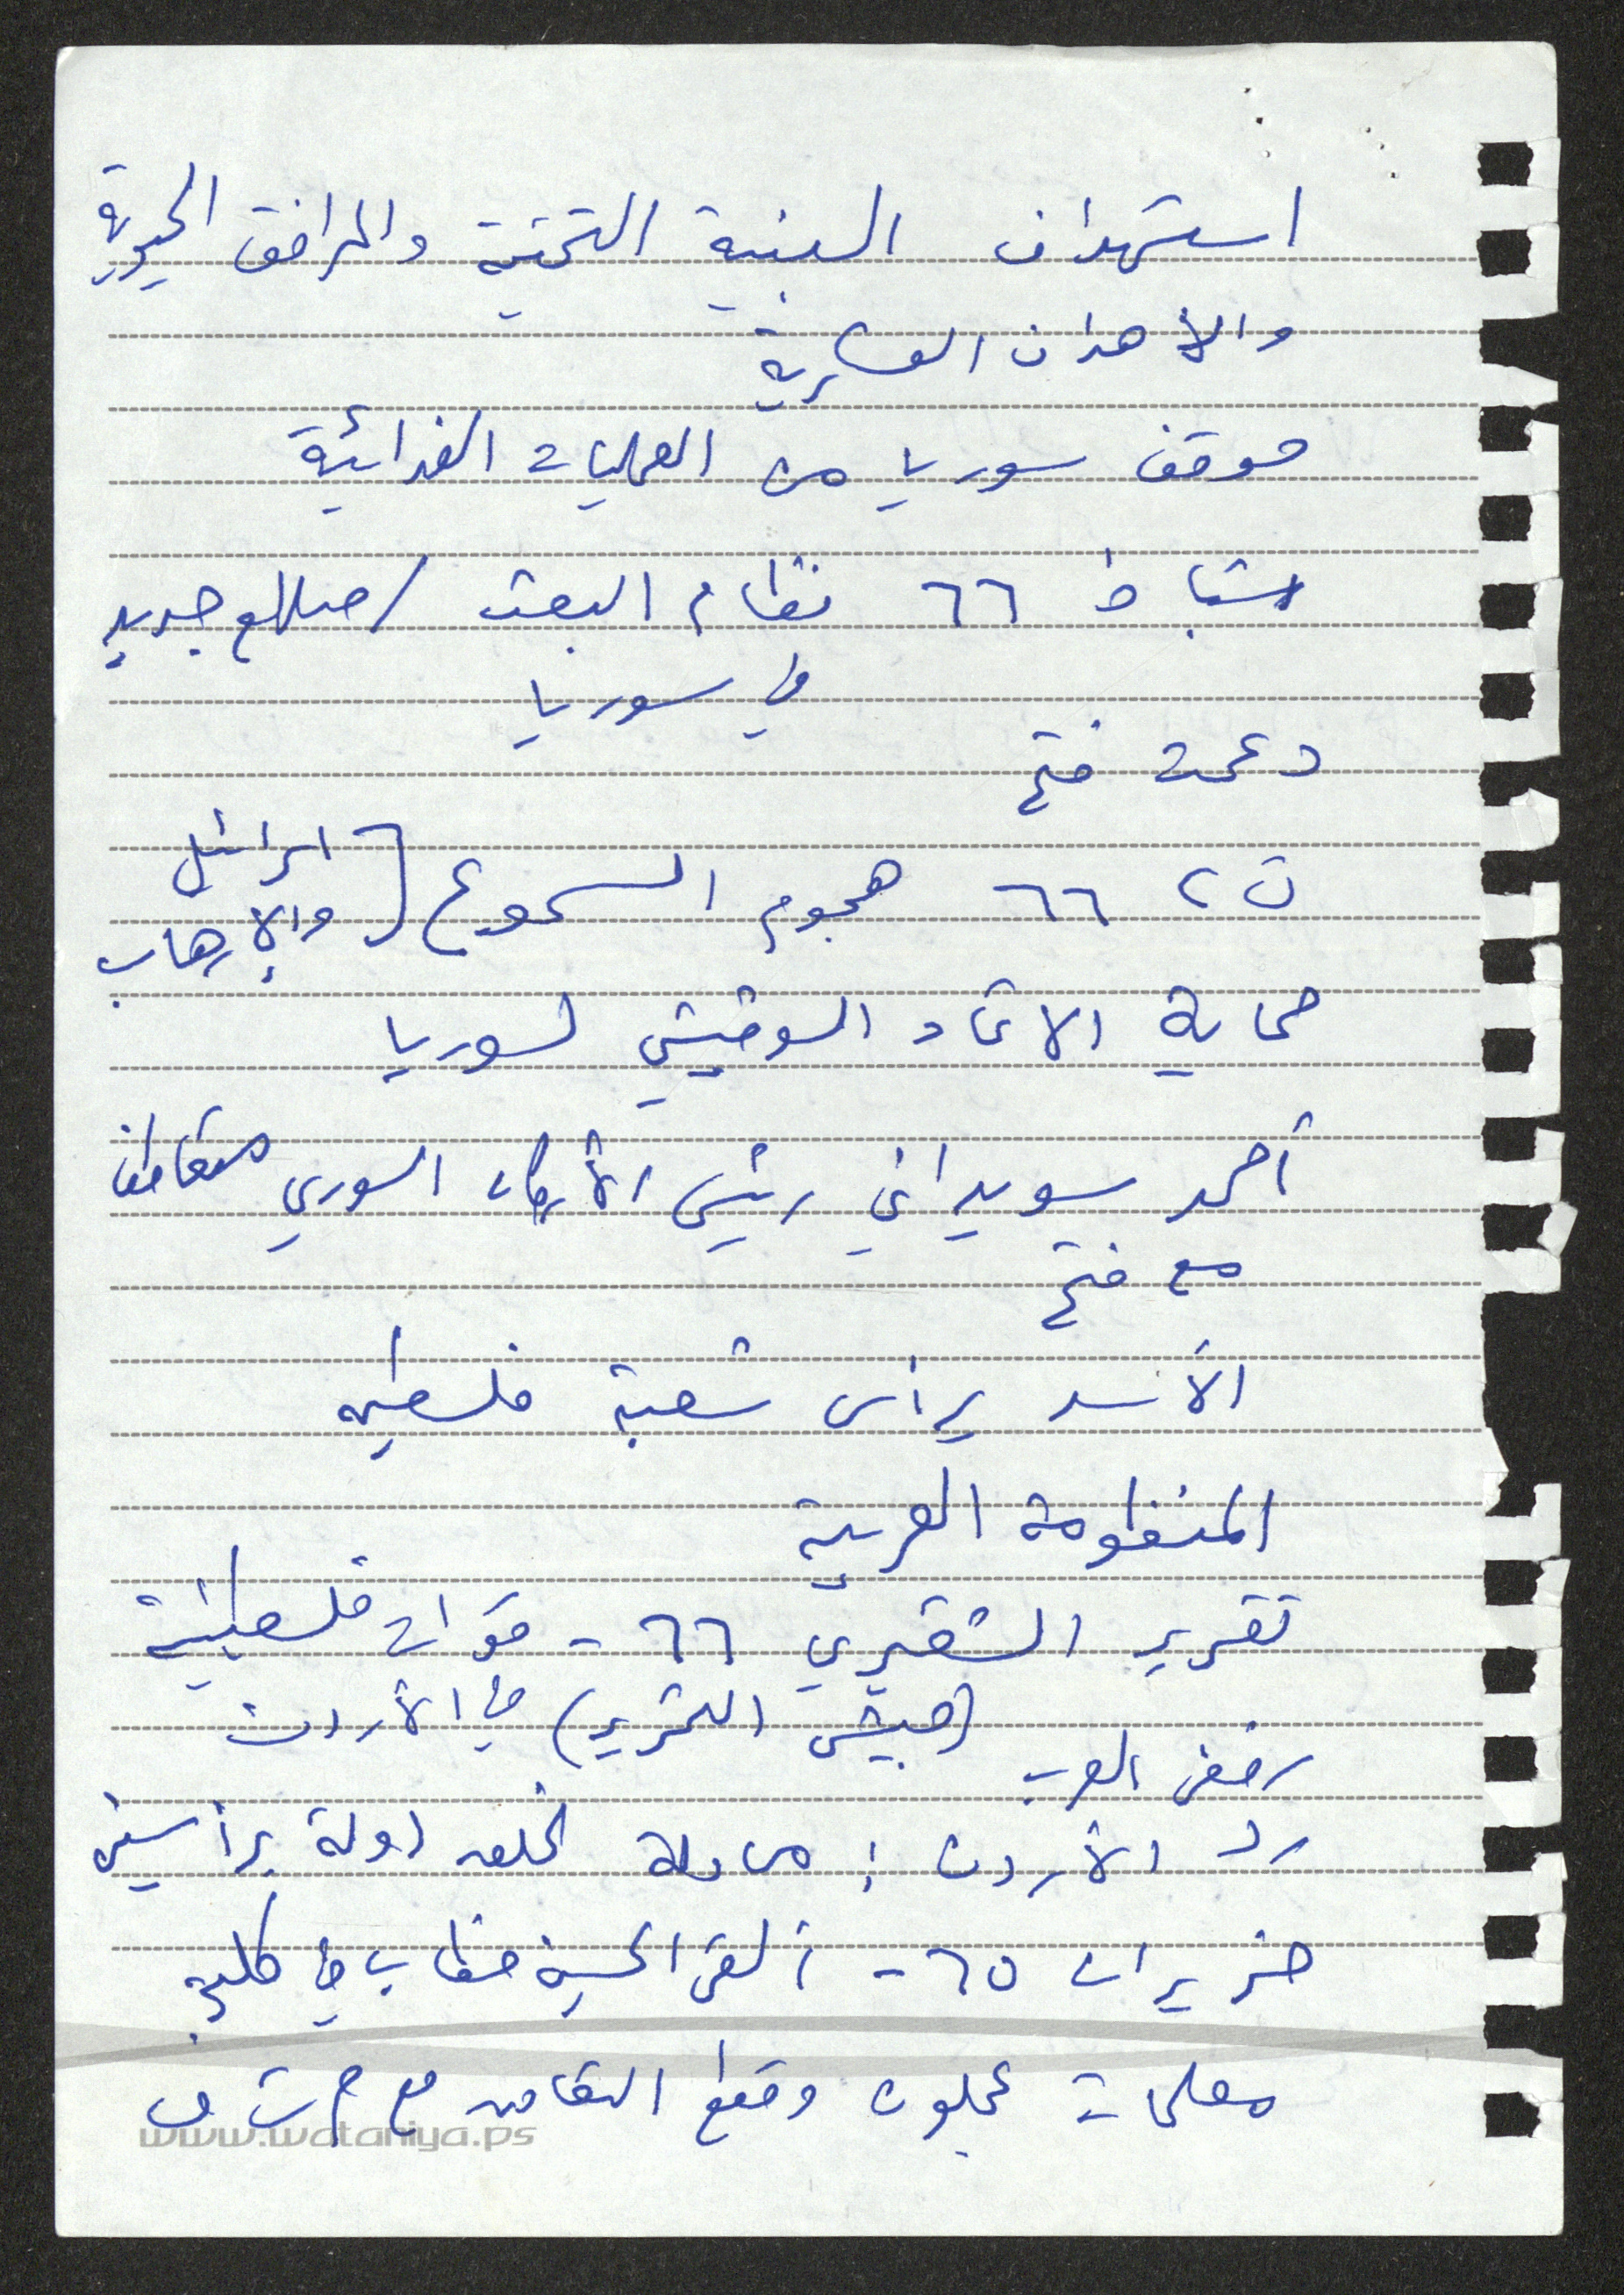 استهداف البنية التحتية والمرافق الحيوية
والأهداف العسكرية
موقف سوريا من العمليات الفدائية
شباط ٦٦ نظام البعث / صلاح جديد
في سوريا
دعمت فتح
ت ٢ ٦٦ هجوم السموع [ اسرائيل
والإرهاب
حماية الاتحاد السوفيتي لسوريا
أحمد سويداني رئيس الأركان السوري متعاطف
مع فتح
الأسد يرأس شعبة فلسطين
المنظومة العربية
تقرير الشقيري ٦٦ - قوات فلسطينية
(جيش التحرير) في الأردن
رفض العرب
رد الأردن : محاولة لخلق دولة برأسين
حزيران ٦٥ - ألقى الحسين خطاب في كلية
معلمات عجلون وقطع التعامل مع م ت ف
www.wataniya.ps